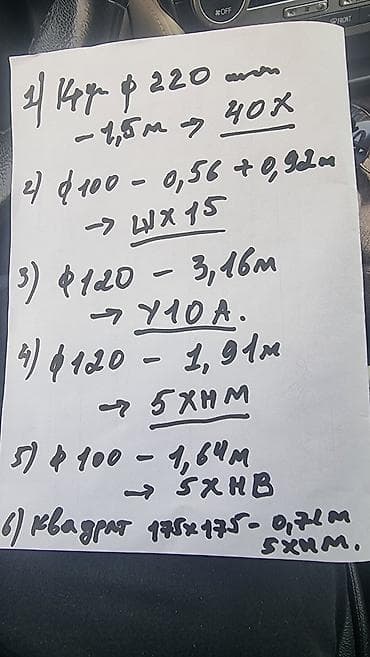 1) Круг ф 220 мм
- 1,5м → 40Х
2) ф100 - 0,56 + 0,92м
→ ШХ15
3) ф120 - 3,16м
→ У10А.
4) ф120 - 1,91м
→ 5ХНМ
5) ф100 - 1,64м
→ 5ХНВ
6) квадрат 175х175 - 0,72м
5ХНМ.
OFF
FRONT